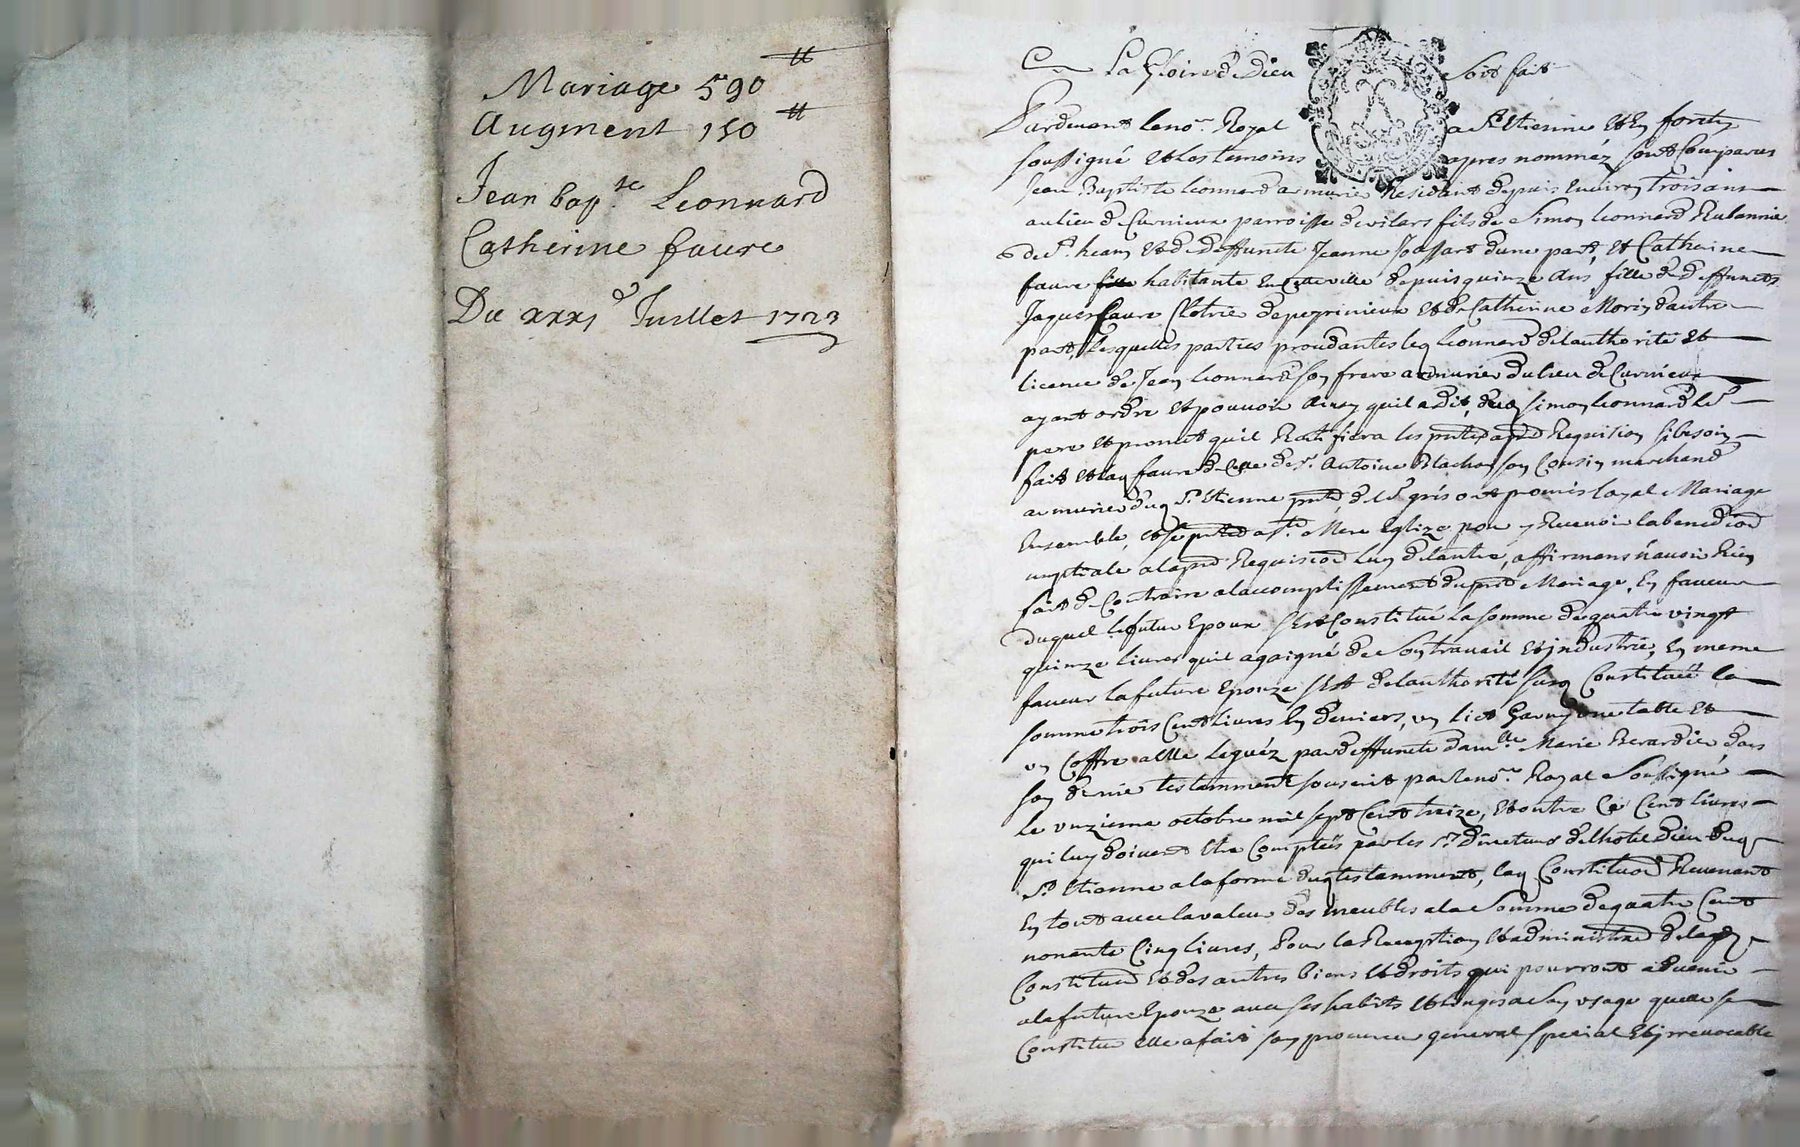 Mariage 590 ₶
Augment 150 ₶
Jean bap.te Leonnard
Catherine faure
Du xxxj Juillet 1723
La Gloire de Dieu soit fait
Pardevant le no.re Royal a St Etienne Et En forests
soussigné et les temoins apres nomméz sont Comparus
Jean Baptiste Leonnard armurier Residant depuis Environ trois ans
au lieu de Curnieux parroisse de vilars fils de Simon Leonnard Rubannier
de St. heam et de deffuncte Jeanne d'une part, et Catherine
faure habitante En cette ville depuis quinze ans, fille de deffuncts
Jaques faure de peyrinieux et de Catherine Morin d'autre
part, Lesquelles parties procedantes led Leonnard de lauthorité et
licence de Jean Leonnard son frere armurier du lieu de Curnieux
ayant ordre et pouvoir Ainsy quil a dit, dud Simon Leonnard leur
pere et promet quil Ratifiera les a Requision si besoin
fait et lad faure de Celle de sr. Antoine Blachon son Cousin marchand
armurier dud St. Etienne de leur gré ont promis loyal Mariage
Ensemble, et se a ste. Mere Eglize pour y Recevoir la benediction
nuptiale a la Requision Lun de lautre, affirmans navoir Rien
fait de Contraire a laccomplissement du Mariage, En faveur
duquel le futur Epoux sest Constitué la somme de quatre vingt
quinze livres quil a gaigné de son travail et industrie, En meme
faveur la future Epouze sest de lauthorité susd Constituée la
somme trois Cent livres En deniers, un lict Garny une table et
un Coffre a Elle Leguéz par deffuncte dam.lle Marie Berardier dans
son dernier testamment par le no.re Royal Soussigné
le unzieme octobre mil sept Cent treize, et outre Ce Cent livres
qui luy doivent Etre Comptéés par les srs directeurs de lhotel Dieu dud
St. Etienne a la forme dud testamment, lad Constitution Revenant
En tout avec la valeur des meubles a la Somme de quatre Cent
nonante Cinq livres, Pour la Reception et administration de lad
Constitution et des autres biens et droits qui pourront advenir
a la future Epouze avec ses habits et linges a son usage quelle se
Constitue elle a fait son procureur general special et irrevocable